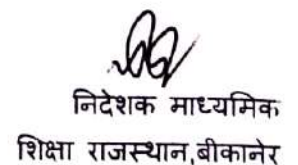 निदेशक माध्यमिक
शिक्षा राजस्थान,बीकानेर